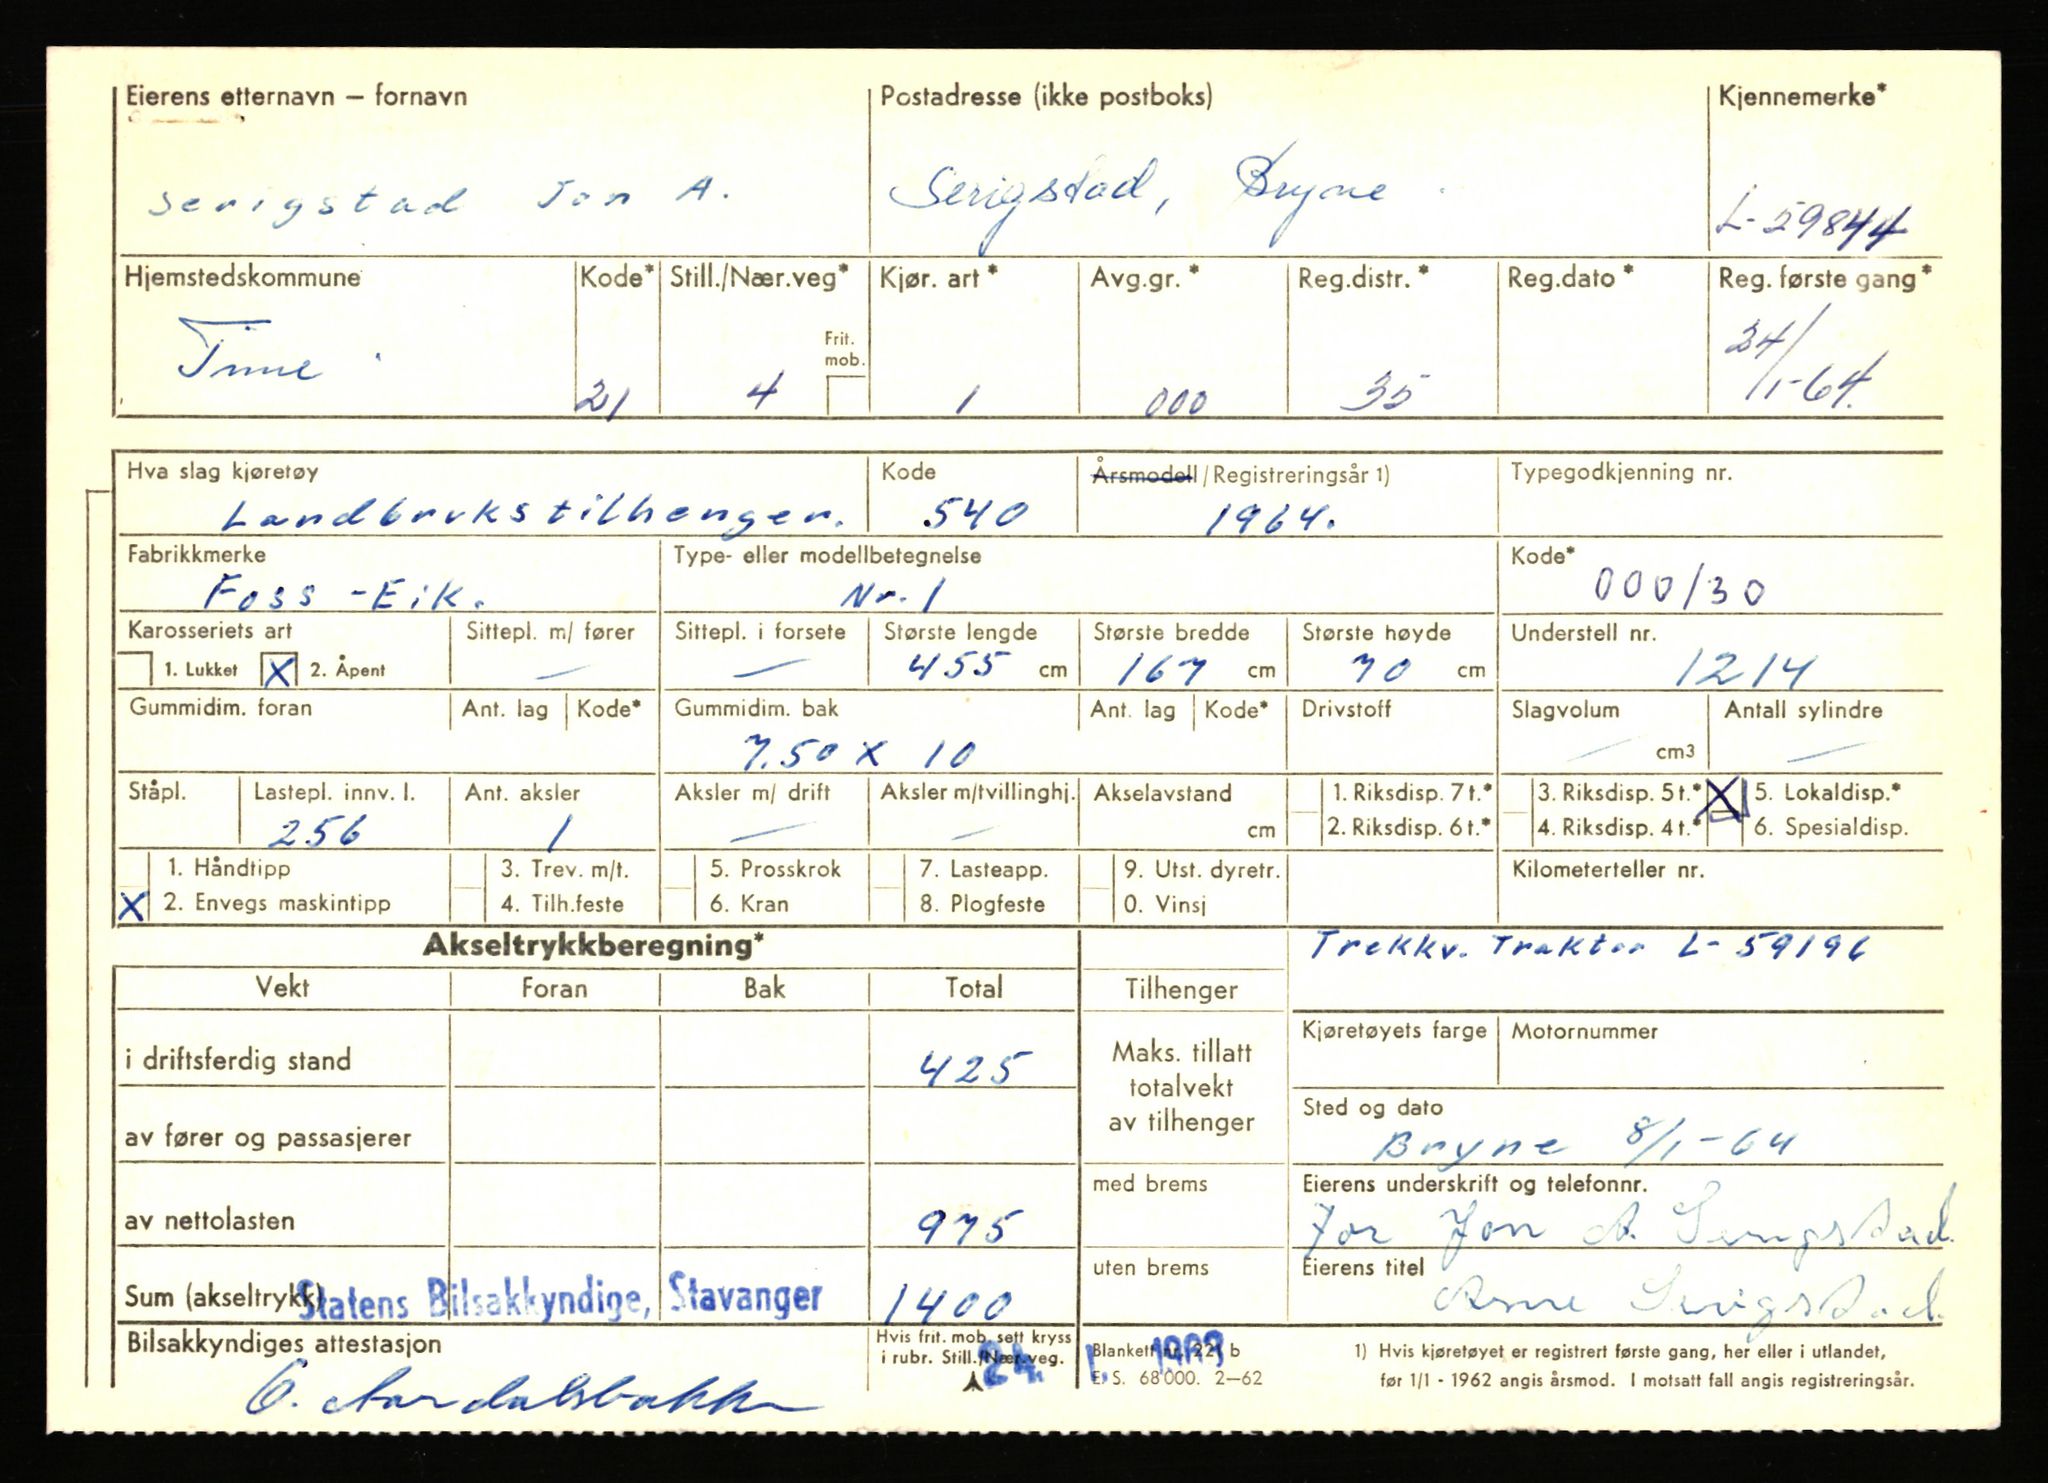 Eierens etternavn – fornavn Postadresse (ikke postboks) Kjennemerke*
Serigstad Jon A. Serigstad, Bryne L-59844
Hjemstedskommune Kode* Still./Nær.veg* Kjør. art* Avg.gr.* Reg.distr.* Reg.dato* Reg. første gang*
Frit. mob.
Time 21 4 1 000 35 24/1-64.
Hva slag kjøretøy Kode Årsmodell/Registreringsår 1) Typegodkjenning nr.
Landbrukstilhenger. 540 1964.
Fabrikkmerke Type- eller modellbetegnelse Kode*
Foss-Eik. Nr. 1 000/30
Karosseriets art Sittepl. m/ fører Sittepl. i forsete Største lengde Største bredde Største høyde Understell nr.
1. Lukket X 2. Åpent — — 455 cm 167 cm 70 cm 1214
Gummidim. foran Ant. lag Kode* Gummidim. bak Ant. lag Kode* Drivstoff Slagvolum Antall sylindre
7.50 x 10 — cm3 —
Ståpl. Lastepl. innv. l. Ant. aksler Aksler m/ drift Aksler m/tvillinghj. Akselavstand 1. Riksdisp. 7 t.* 3. Riksdisp. 5 t.* X 5. Lokaldisp.*
256 1 — — cm 2. Riksdisp. 6 t.* 4. Riksdisp. 4 t.* 6. Spesialdisp.
1. Håndtipp 3. Trev. m/t. 5. Prosskrok 7. Lasteapp. 9. Utst. dyretr. Kilometerteller nr.
X 2. Envegs maskintipp 4. Tilh.feste 6. Kran 8. Plogfeste 0. Vinsj
Akseltrykkberegning* Trekkv. Traktor L-59196
Vekt Foran Bak Total Tilhenger
Kjøretøyets farge Motornummer
i driftsferdig stand 425 Maks. tillatt
totalvekt
av tilhenger
Sted og dato
av fører og passasjerer Bryne 8/1-64
med brems Eierens underskrift og telefonnr.
av nettolasten 975 for Jon A. Serigstad.
uten brems Eierens titel
Sum (akseltrykk) Statens Bilsakkyndige, Stavanger 1400 Arne Serigstad.
Bilsakkyndiges attestasjon Hvis frit. mob. sett kryss Blankett nr. 221 b 1) Hvis kjøretøyet er registrert første gang, her eller i utlandet,
i rubr. Still./Nær.veg. 24. 1. E. S. 68 000. 2–62 før 1/1 - 1962 angis årsmod. I motsatt fall angis registreringsår.